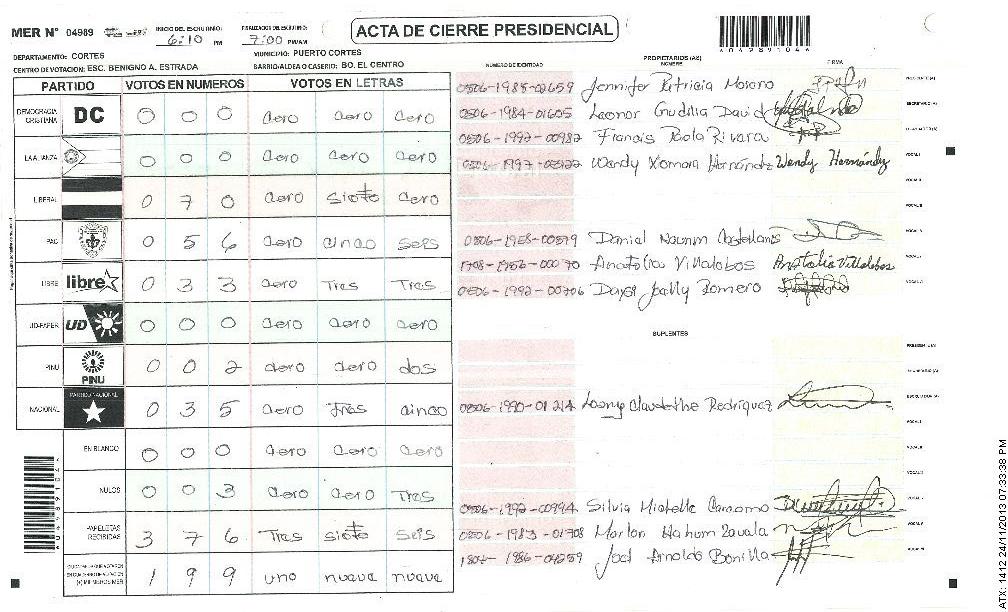 MER N° 04989
INICIO DEL ESCRUTINIO: 6:10 PM
FINALIZACION DEL ESCRUTINIO: 7:00 PM/AM
ACTA DE CIERRE PRESIDENCIAL
DEPARTAMENTO: CORTES
MUNICIPIO: PUERTO CORTES
CENTRO DE VOTACION: ESC. BENIGNO A. ESTRADA
BARRIO/ALDEA O CASERIO: BO. EL CENTRO
PARTIDO VOTOS EN NUMEROS VOTOS EN LETRAS
DEMOCRACIA CRISTIANA DC 0 0 0 cero cero cero
LA ALIANZA 0 0 0 cero cero cero
LIBERAL 0 7 0 cero siete cero
PAC 0 5 6 cero cinco seis
LIBRE libre 0 3 3 cero Tres Tres
UD-FAPER UD 0 0 0 cero cero cero
PINU PINU 0 0 2 cero cero dos
NACIONAL PARTIDO NACIONAL 0 3 5 cero Tres cinco
EN BLANCO 0 0 0 cero cero cero
NULOS 0 0 3 cero cero Tres
PAPELETAS RECIBIDAS 3 7 6 Tres siete seis
1 9 9 uno nueve nueve
NUMERO DE IDENTIDAD PROPIETARIOS (AS) NOMBRE FIRMA
0506-1985-02659 Jennifer Patricia Moreno
0506-1984-01605 Leonor Gudilia David
0506-1992-00982 Francis Paola Rivera
Wendy Xomara Hernández Wendy Hernández
Daniel Naumn Castellanos
Anatolia Villalobos Anatolia Villalobos
0506-1992-00706 Daysi Jolly Romero
SUPLENTES
0506-1990-01214 Rodriguez
0506-1992-00994 Silvia Michelle
0506-1983-01708 Marlon Nahum Zavala
Joel Arnoldo Bonilla
ATX: 1412 24/11/2013 07:33:38 PM